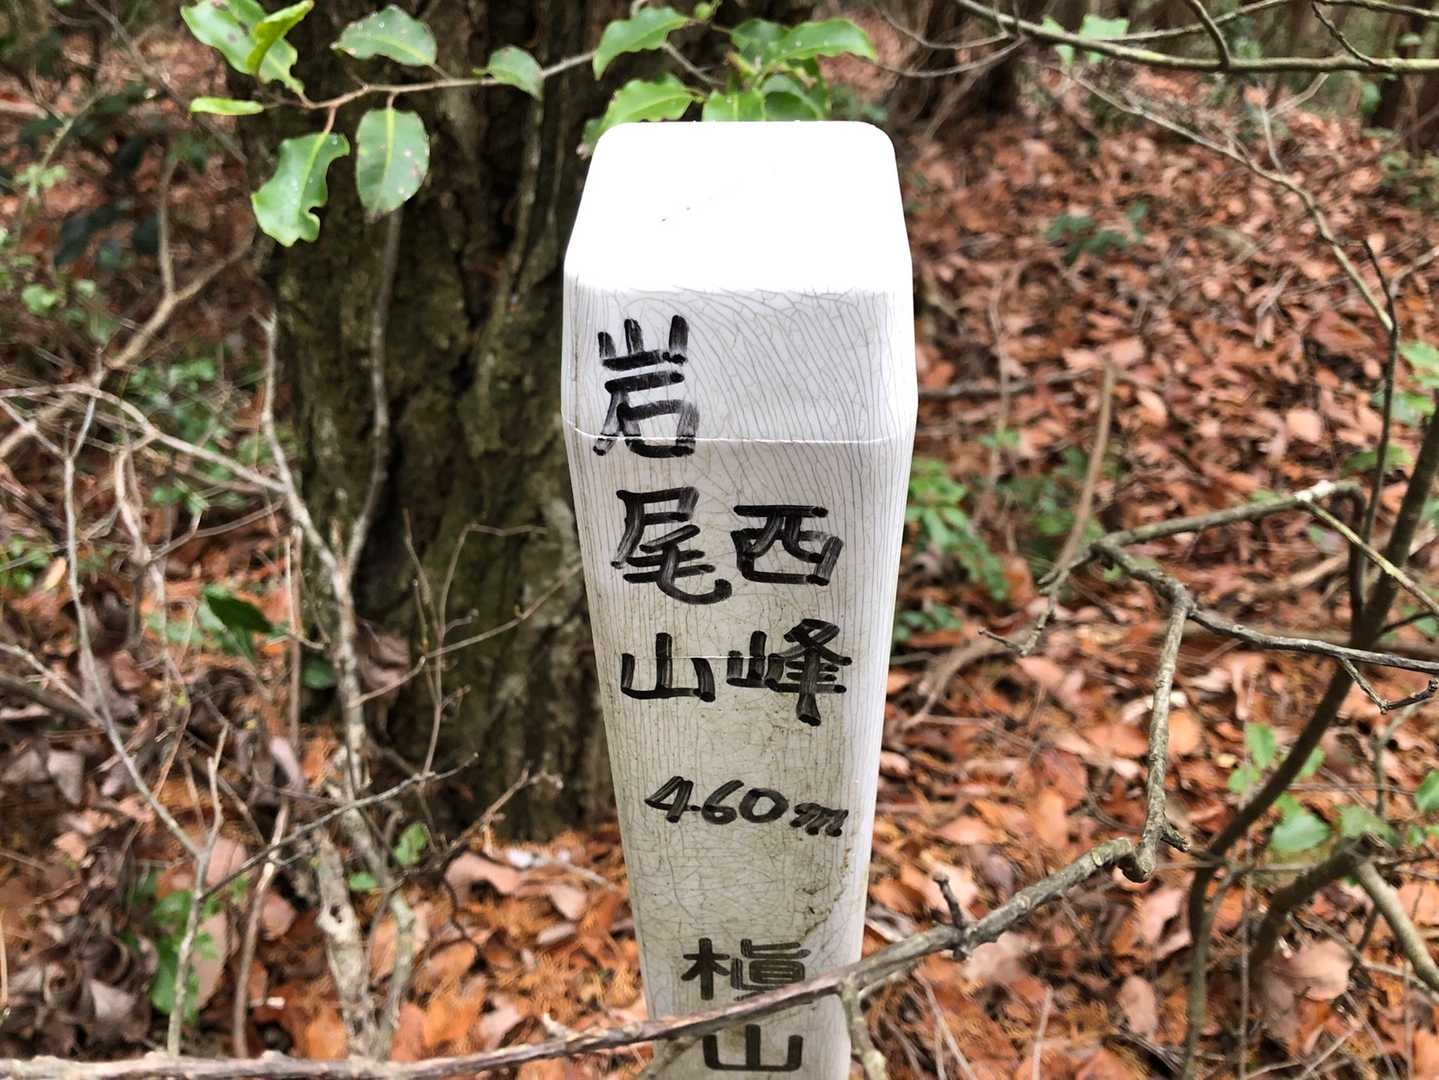 岩尾山
西峰
460m
槇山